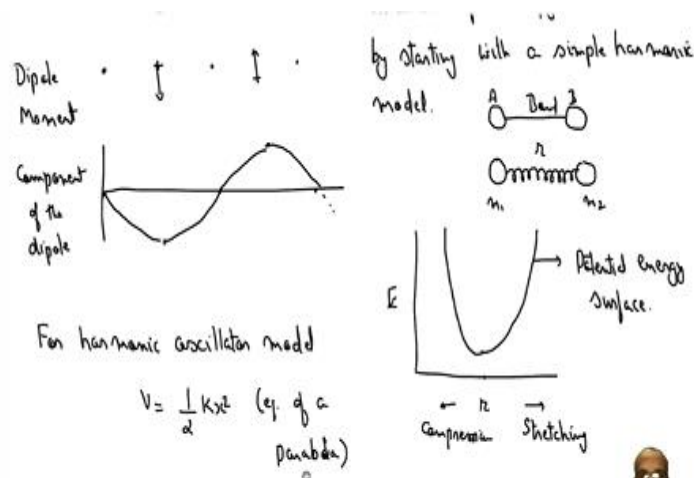 Dipole
Moment
Component
of the
dipole
For harmonic oscillator model
V = 1/2 Kx² (eq. of a
parabola)
by starting with a simple harmonic
model.
A Bond B
r
m₁ m₂
E
Potential energy
surface.
← r →
Compression Stretching